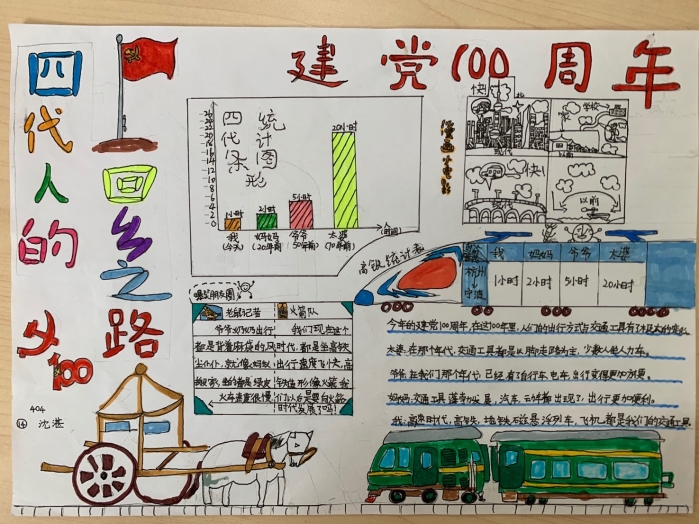 建党100周年
四代人的
回乡之路
100
404
⑭ 沈湛
四代条形
统计图
26
24
22
20
18
16
14
12
10
8
6
4
2
0
1小时
2小时
5小时
20小时
我
妈妈
爷爷
太婆
(今天)
(20年前)
(50年前)
(70年前)
(时间)
快!
现代
学校
快!
以前
高铁统计表
我 妈妈 爷爷 太婆
杭州
宁波
1小时 2小时 5小时 20小时
朋友圈
老鼠记者
火箭队
爷爷奶奶出行
都是背着麻袋的风
火车速度很慢
我们现在这个
时代,都是坐高铁
出行速度飞快,高
铁造形像火箭,我
们以后是要向火箭
时代发展了吗!
今年的建党100周年,在这100年里,人们的出行方式与交通工具有了很大的变化
太婆:在那个年代,交通工具都是以脚走路为主,少数人坐人力车。
爷爷:在我们那个年代,已经有了自行车、电车,出行变得更加方便。
妈妈:交通工具蓬勃发展,汽车、动车都出现了,出行更加便利。
我:高速时代,高铁、地铁
飞机,都是我们的交通工具